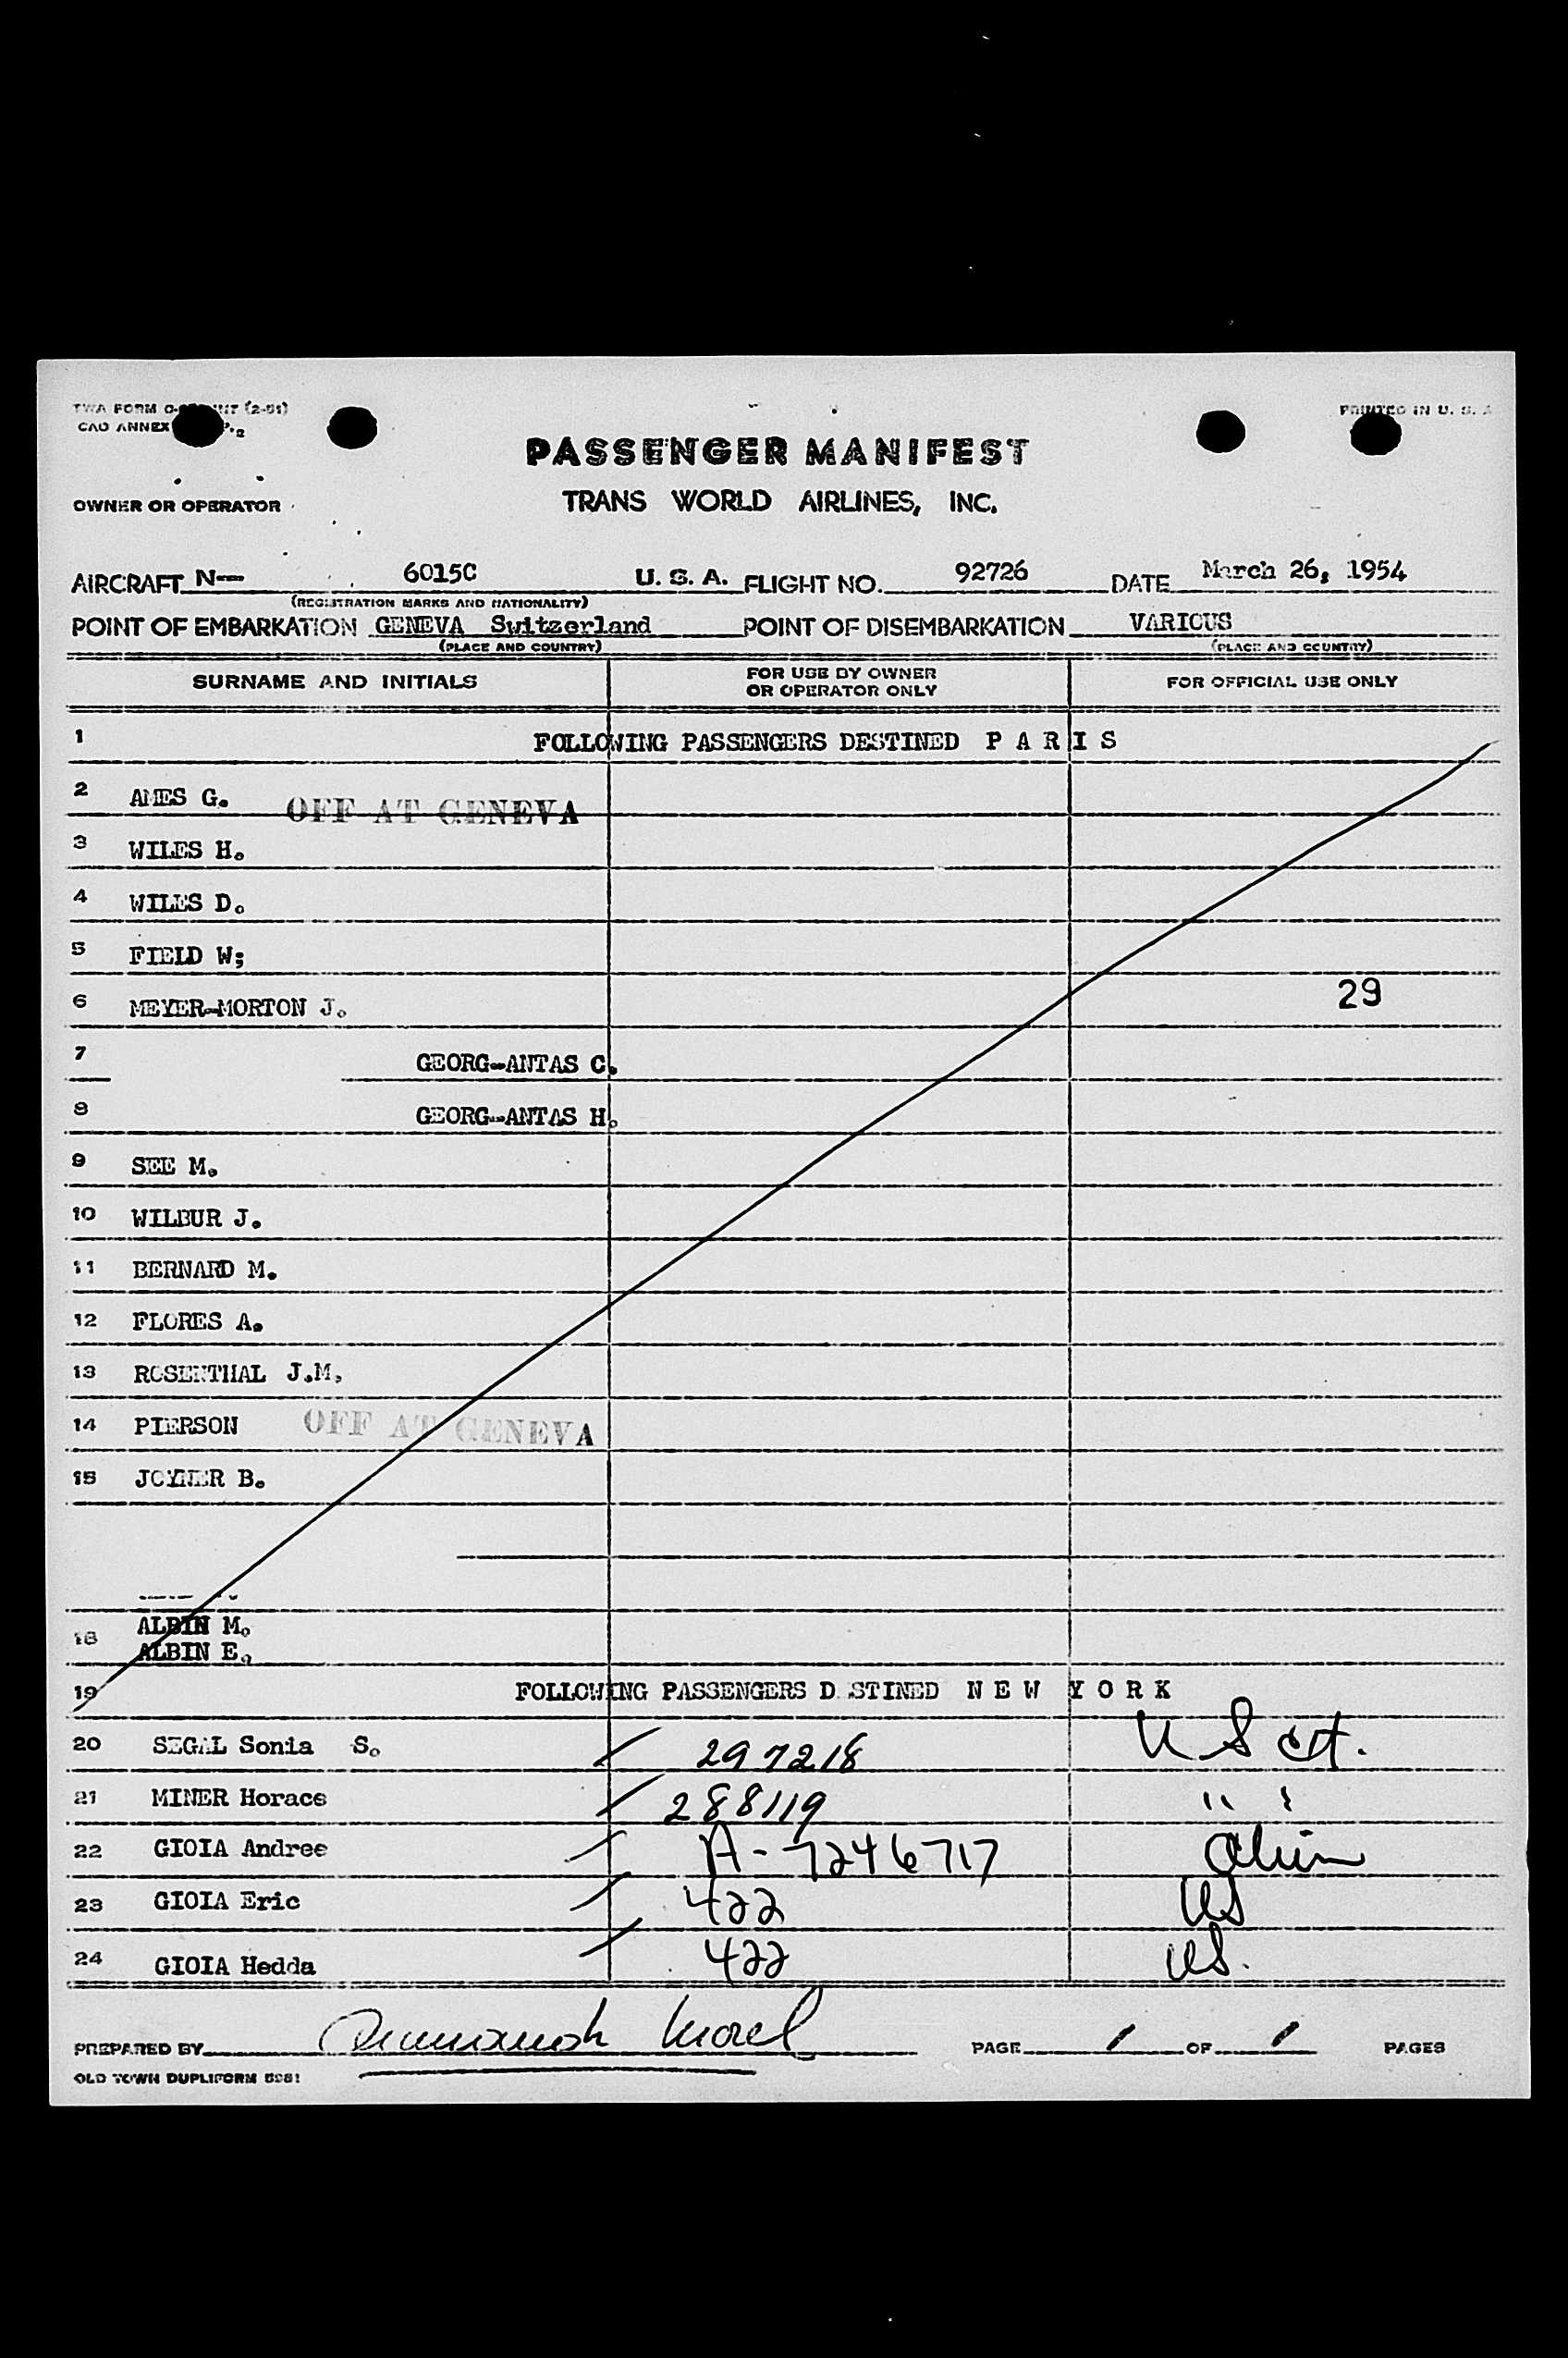 TWA FORM O- INT (2-51)
PRINTED IN U. S. A
CAO ANNEX P.2
PASSENGER MANIFEST
OWNER OR OPERATOR
TRANS WORLD AIRLINES, INC.
AIRCRAFT N-- 6015C U. S. A. FLIGHT NO. 92726 DATE March 26, 1954
(REGISTRATION MARKS AND NATIONALITY)
POINT OF EMBARKATION GENEVA Switzerland POINT OF DISEMBARKATION VARIOUS
(PLACE AND COUNTRY) (PLACE AND COUNTRY)
SURNAME AND INITIALS FOR USE BY OWNER OR OPERATOR ONLY FOR OFFICIAL USE ONLY
1 FOLLOWING PASSENGERS DESTINED P A R I S
2 AMES G. OFF AT GENEVA
3 WILES H.
4 WILES D.
5 FIELD W;
6 MEYER-MORTON J. 29
7 GEORG-ANTAS C.
8 GEORG-ANTAS H.
9 SEE M.
10 WILBUR J.
11 BERNARD M.
12 FLORES A.
13 ROSENTHAL J.M.
14 PIERSON OFF AT GENEVA
15 B.
ALBIN M.
18 ALBIN E.
19 FOLLOWING PASSENGERS D STINED N E W Y O R K
20 SEGAL Sonia S. 297218 U S cit.
21 MINER Horace 288119 " "
22 GIOIA Andree A-7246717 Alien
23 GIOIA Eric 422 US
24 GIOIA Hedda 422 US.
PREPARED BY PAGE 1 OF 1 PAGES
OLD TOWN DUPLIFORM